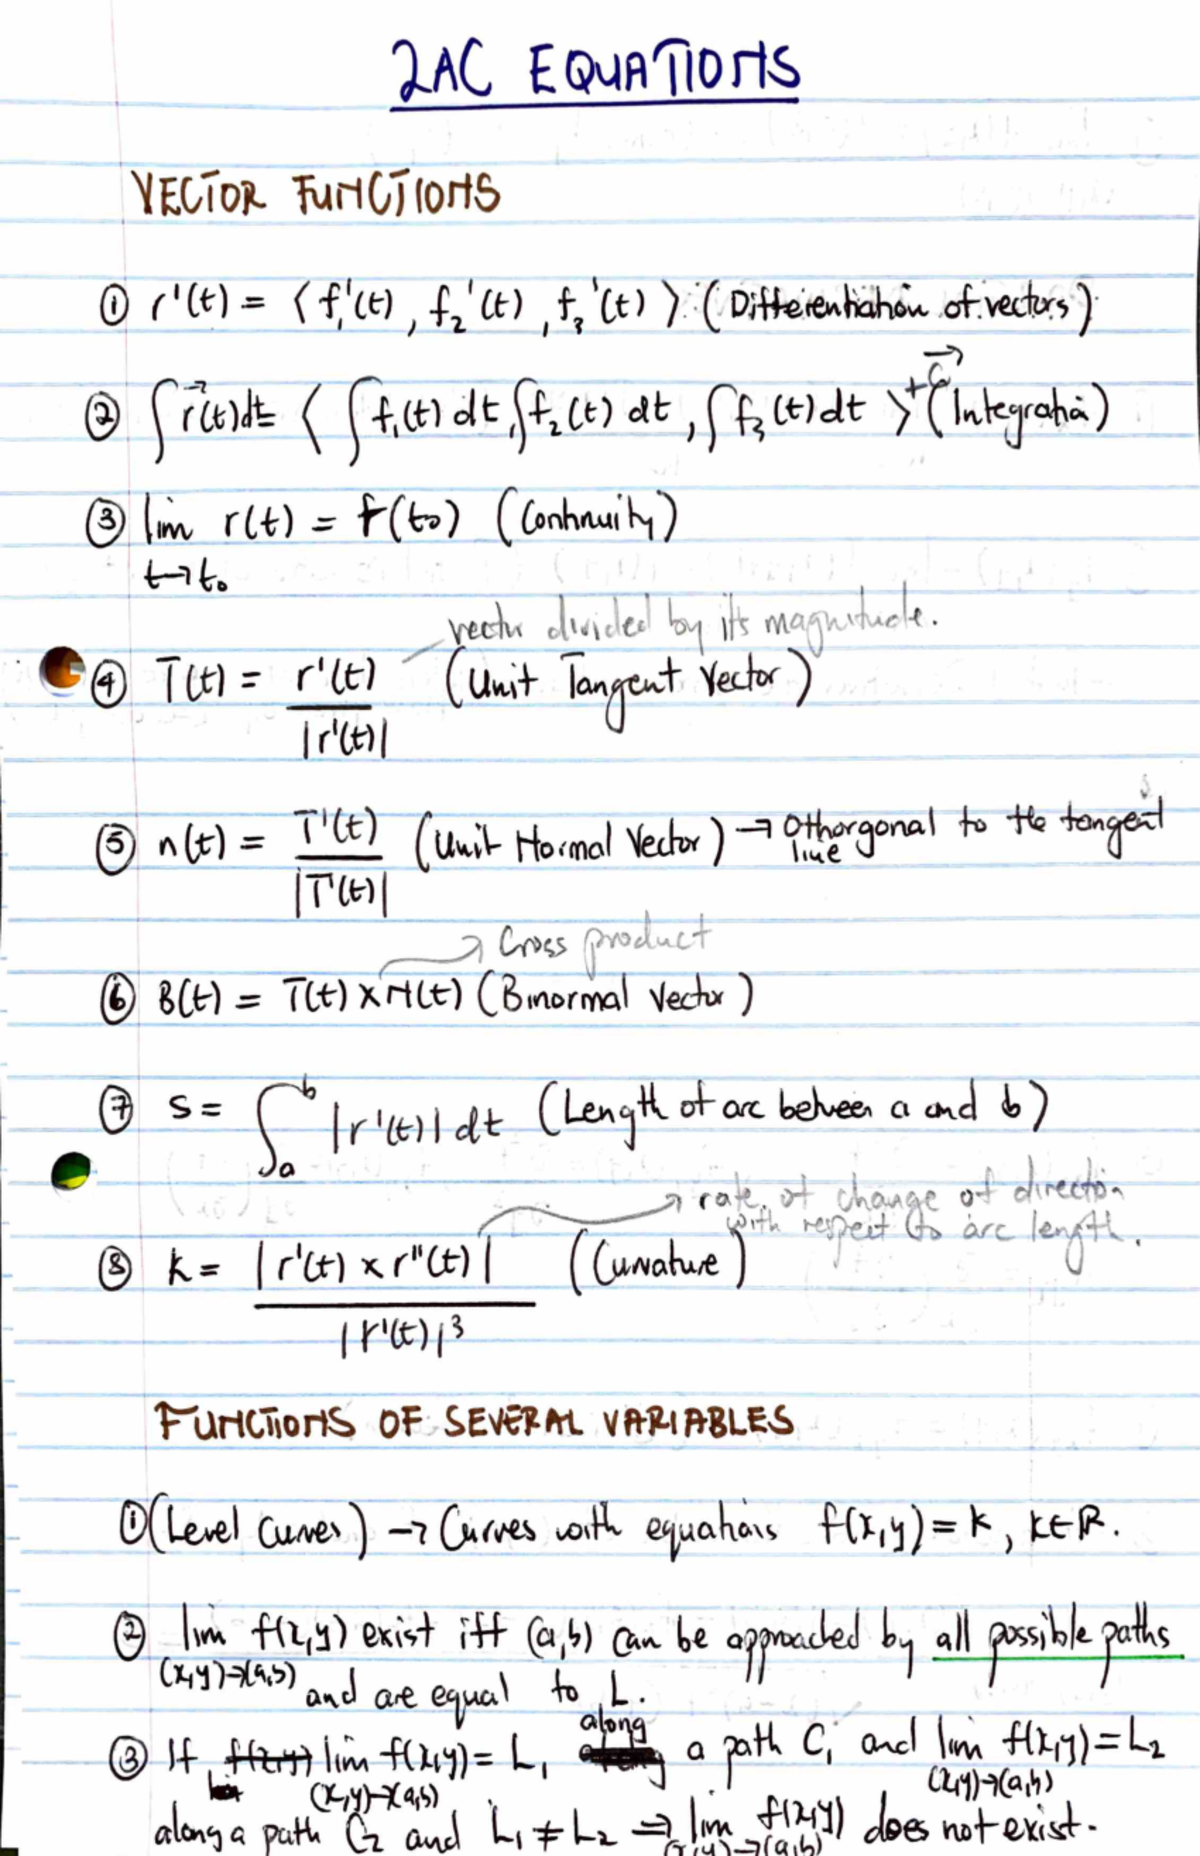 2AC EQUATIONS
VECTOR FUNCTIONS
① r'(t) = ⟨ f₁'(t) , f₂'(t) , f₃'(t) ⟩ (Differentiation of vectors)
② ∫ r⃗(t)dt = ⟨ ∫ f₁(t) dt, ∫ f₂(t) dt , ∫ f₃(t) dt ⟩ + C⃗ (Integration)
③ lim r(t) = r(t₀) (Continuity)
t→t₀
vector divided by its magnitude.
④ T(t) = r'(t) / |r'(t)| (Unit Tangent Vector)
⑤ n(t) = T'(t) / |T'(t)| (Unit Normal Vector) → Othorgonal to the tangent
line
→ Cross product
⑥ B(t) = T(t) × N(t) (Binormal Vector)
⑦ s = ∫ₐᵇ |r'(t)| dt (Length of arc between a and b)
→ rate of change of direction
with respect to arc length.
⑧ k = |r'(t) × r"(t)| / |r'(t)|³ (Curvature)
FUNCTIONS OF SEVERAL VARIABLES
① (Level Curves) → Curves with equations f(x,y) = k , k∈ℝ.
② lim f(x,y) exist iff (a,b) can be approached by all possible paths
(x,y)→(a,b) and are equal to L.
③ If f(x,y) lim f(x,y) = L₁ along a path C₁ and lim f(x,y) = L₂
(x,y)→(a,b) (x,y)→(a,b)
along a path C₂ and L₁ ≠ L₂ ⇒ lim f(x,y) does not exist.
(x,y)→(a,b)